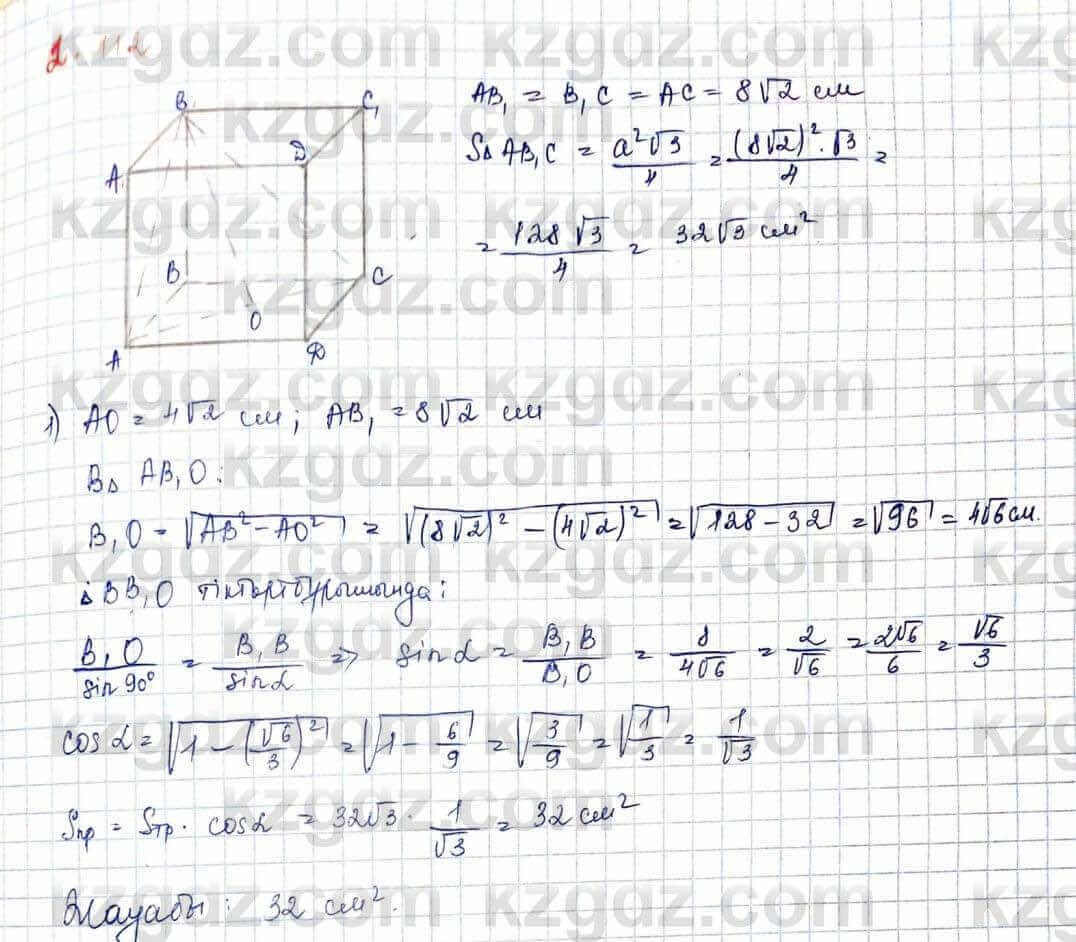 2.112
AB₁ = B₁C = AC = 8√2 см
S△AB₁C = a²√3/4 = (8√2)²·√3/4 =
= 128√3/4 = 32√3 см²
B C₁
A D
B C
O
A D
1) AO = 4√2 см; AB₁ = 8√2 см
B△ AB₁O:
B₁O = √(AB² - AO²) = √((8√2)² - (4√2)²) = √(128 - 32) = √96 = 4√6 см.
△BB₁O тіктөртбұрышында:
B₁O/sin 90° = B₁B/sin α => sin α = B₁B/B₁O = 8/4√6 = 2/√6 = 2√6/6 = √6/3
cos α = √(1 - (√6/3)²) = √(1 - 6/9) = √(3/9) = √(1/3) = 1/√3
Sпр = Sтр · cos α = 32√3 · 1/√3 = 32 см²
Жауабы: 32 см².
kzgdz.com